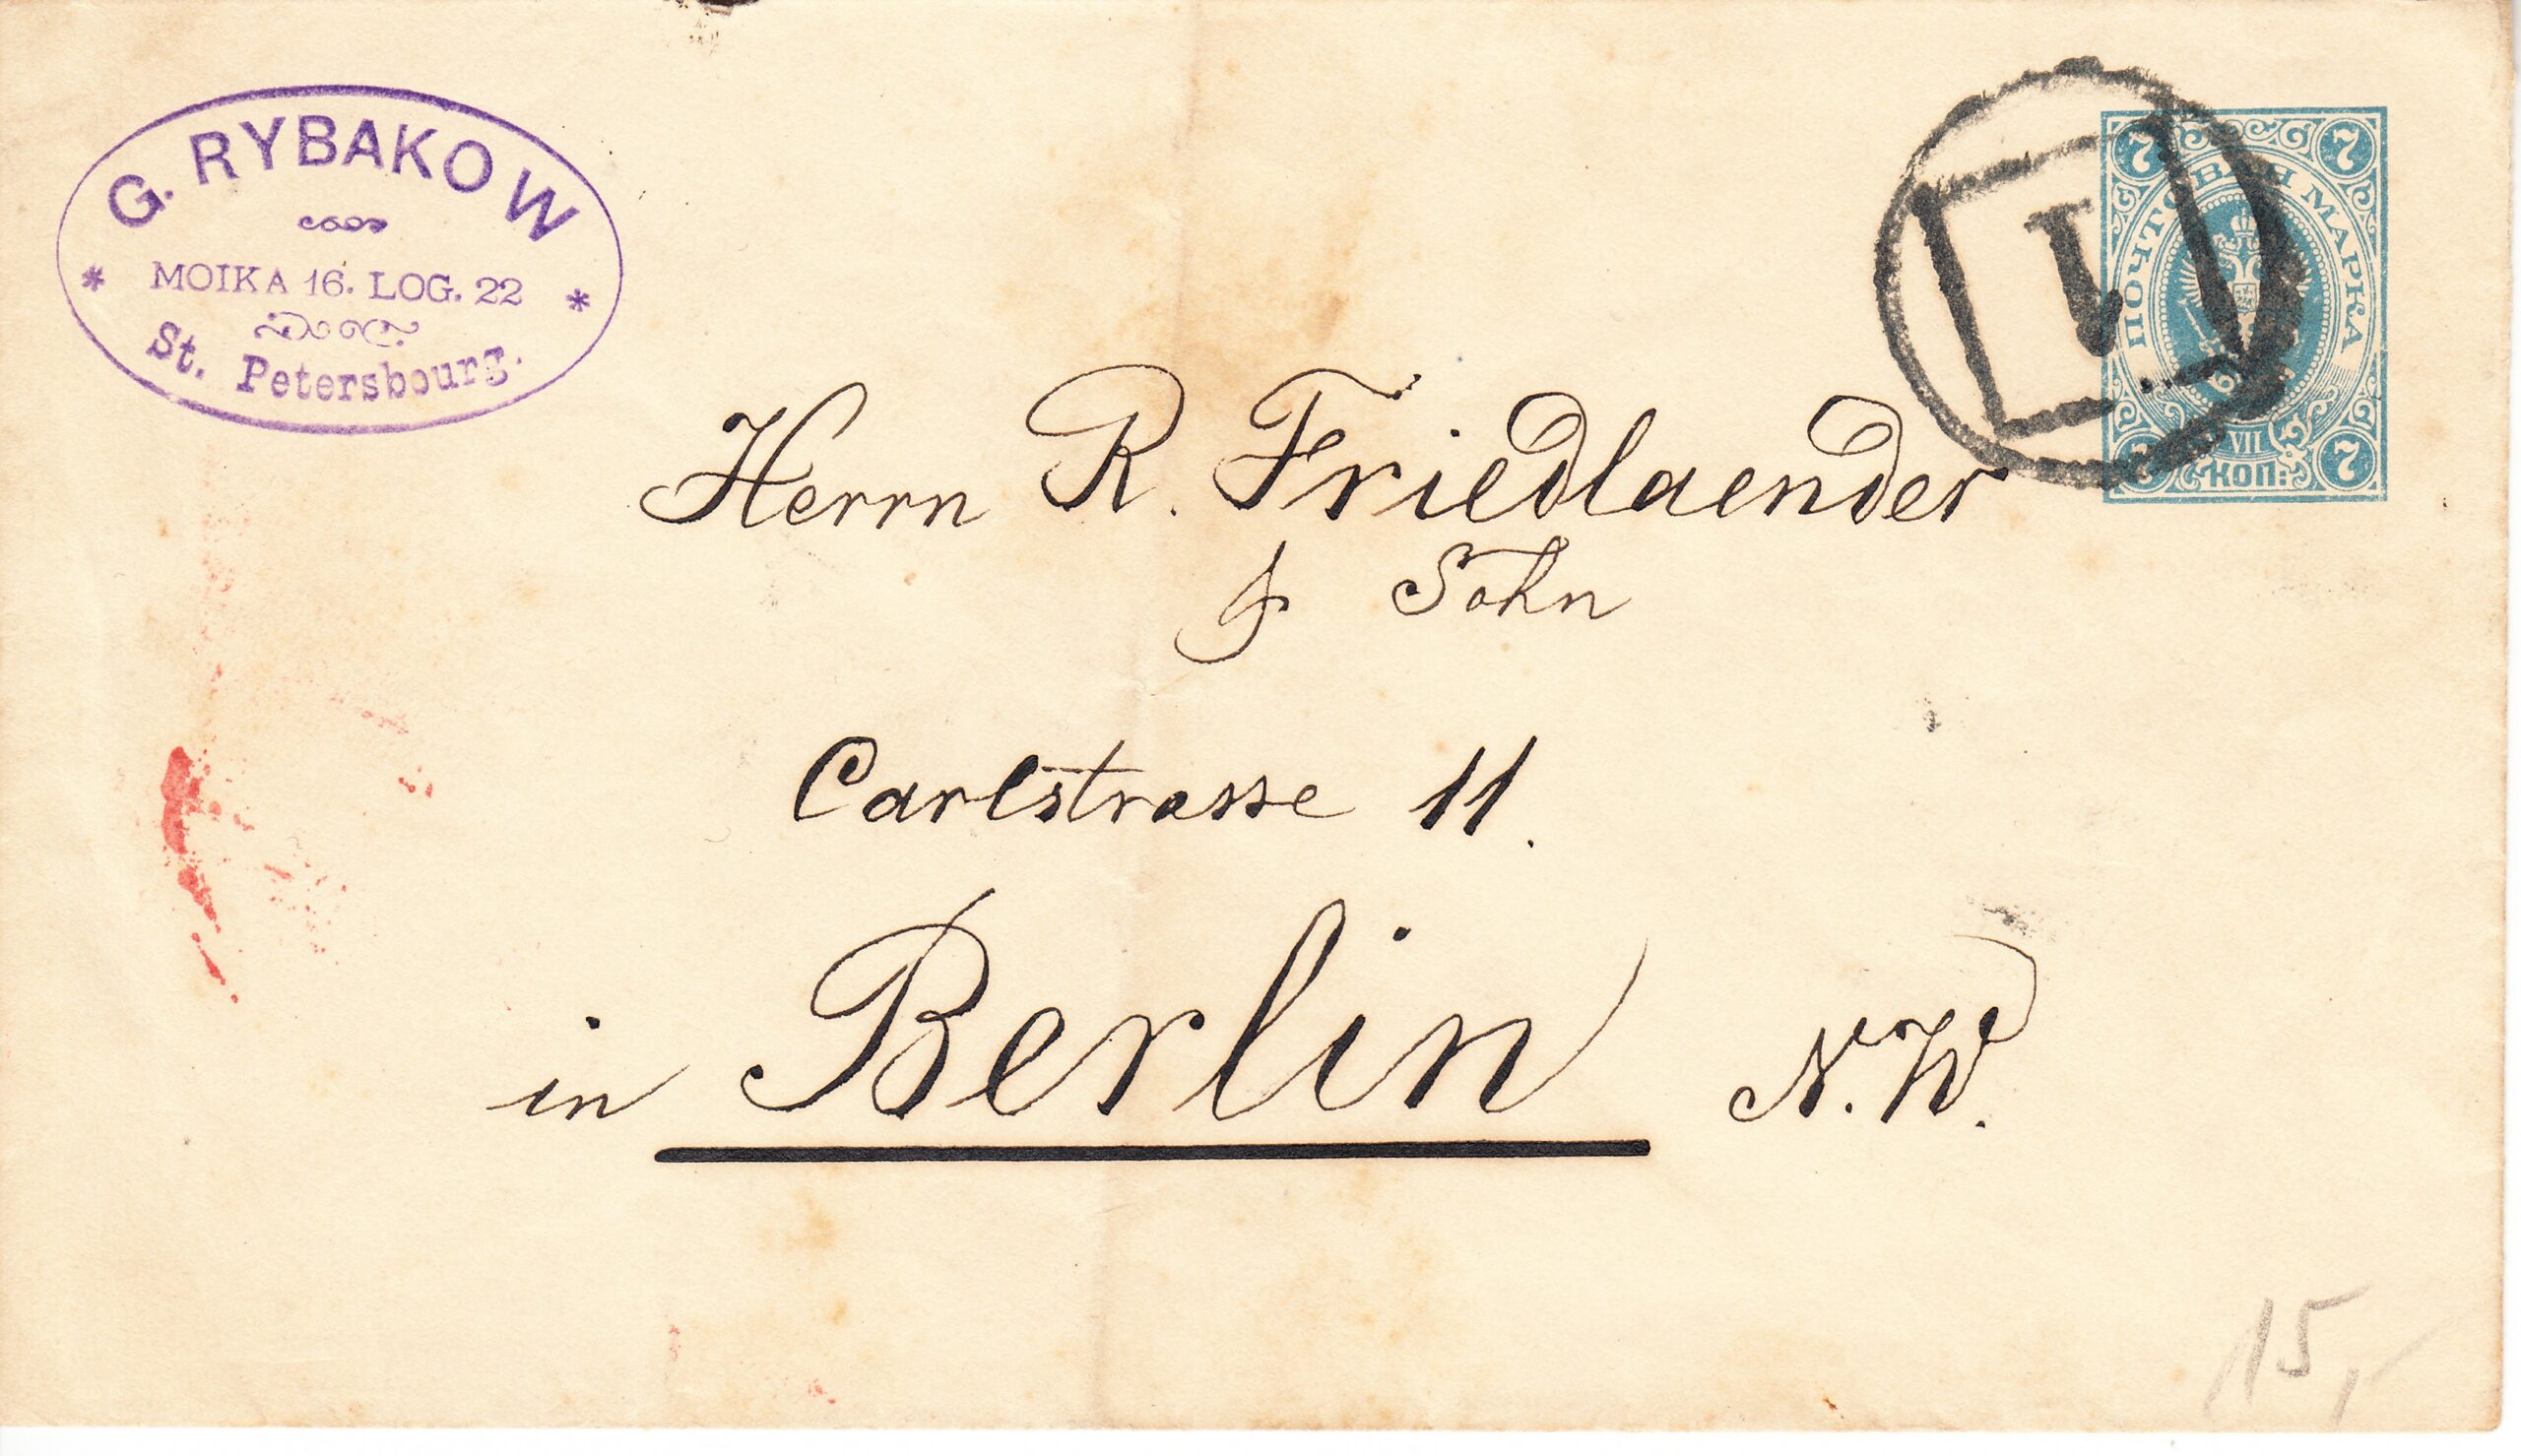 G. RYBAKOW
* MOIKA 16. LOG. 22 *
St. Petersbourg.
7 7
ПОЧТОВАЯ МАРКА
7 VII 7
КОП:
1
Herrn R. Friedlaender
& Sohn
Carlstrasse 11.
in Berlin N.W.
15,